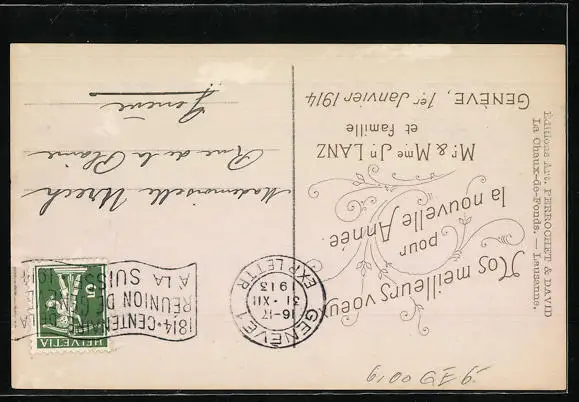 HELVETIA
5
1814 • CENTENAIRE DE LA
RÉUNION DE GENÈVE
A LA SUISSE • 1914
GENÈVE 1
16-17
31 • XII
1913
EXP. LETTR.
Mademoiselle Urech
Rue de la Plaine
Genève
Nos meilleurs voeux
pour
la nouvelle Année.
Mr. & Mme Jn LANZ
et famille
GENÈVE, 1er Janvier 1914
Editions Art. PERROCHET & DAVID
La Chaux-de-Fonds. — Lausanne.